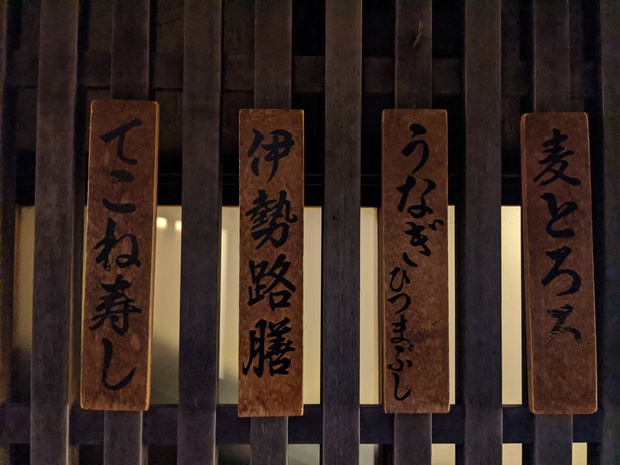 麦とろ
うなぎひつまぶし
伊勢路膳
てこね寿し